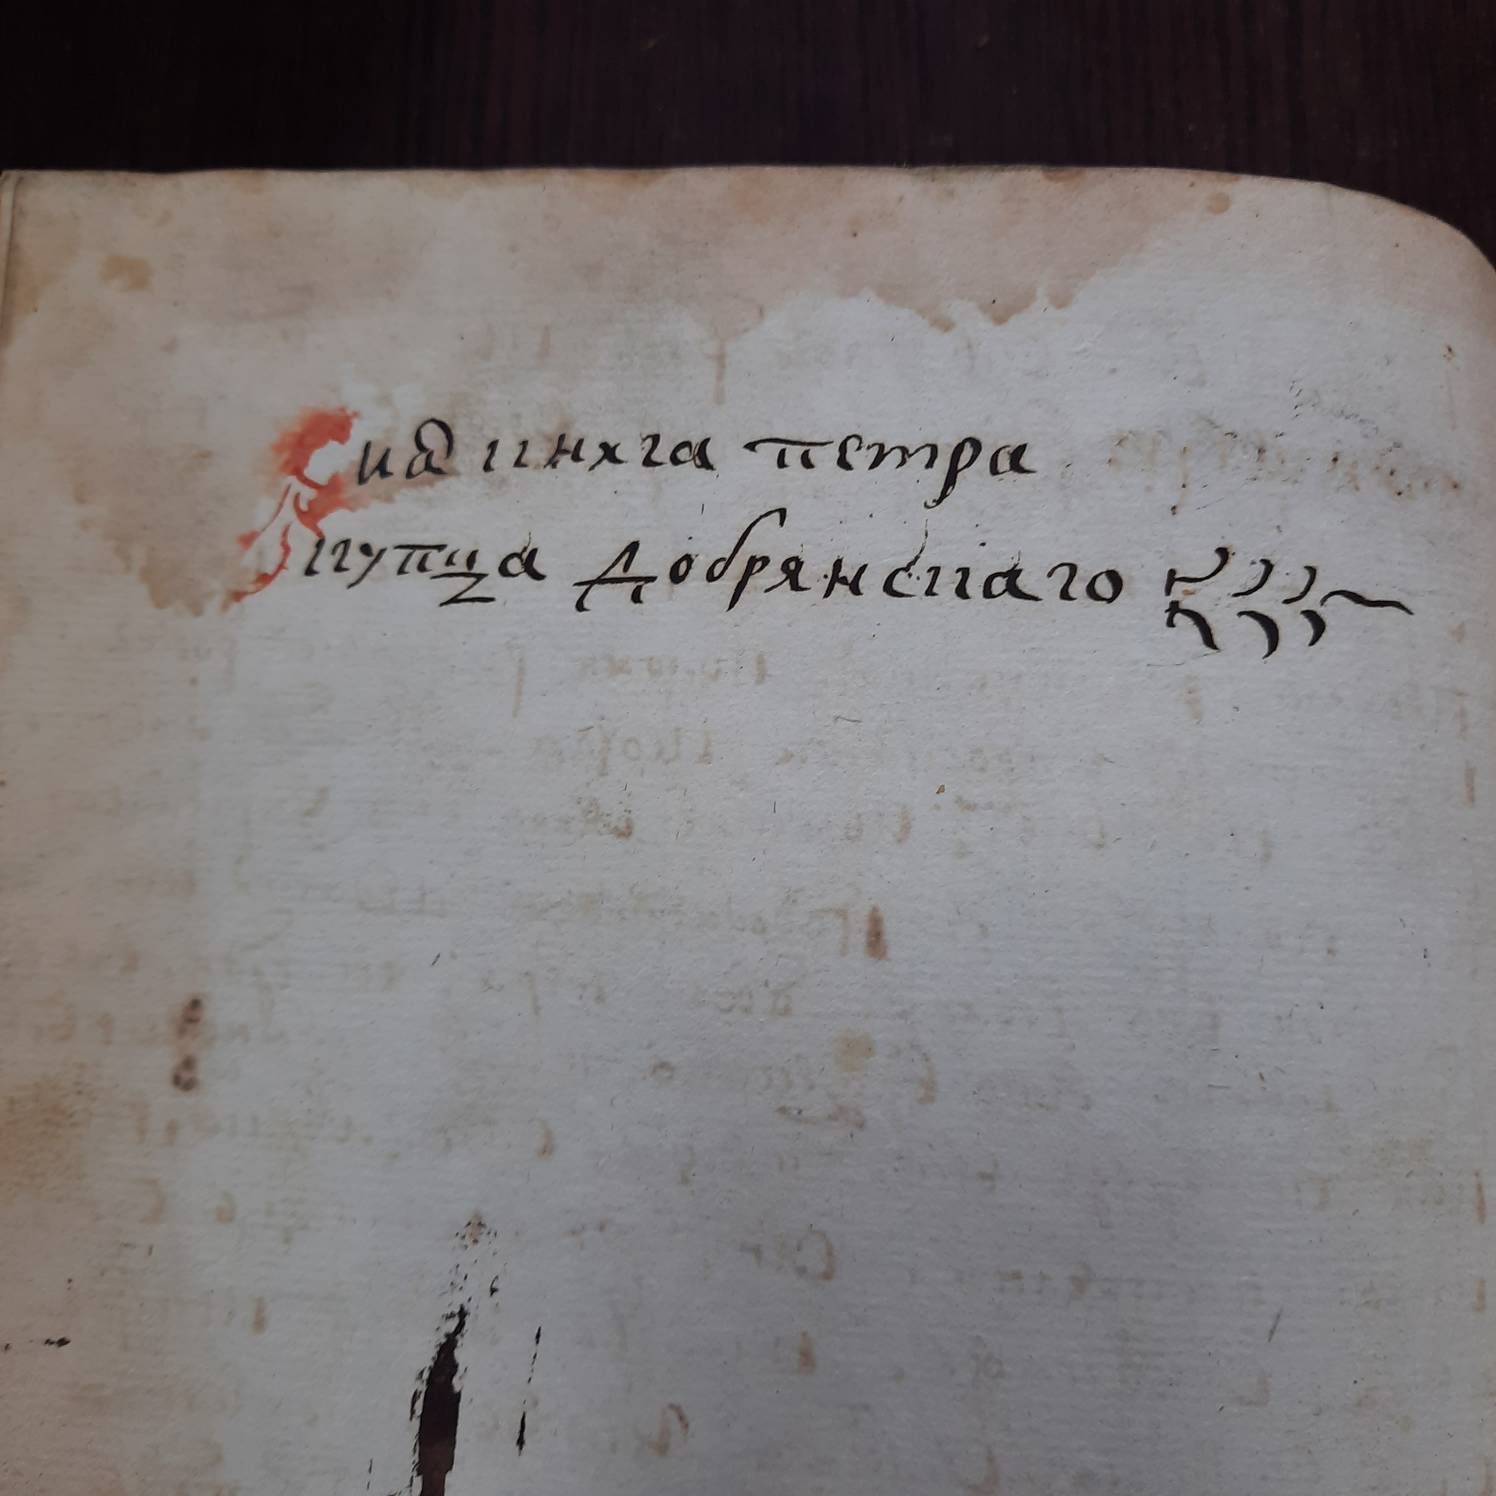 Сия книга петра
купца Добрянскаго